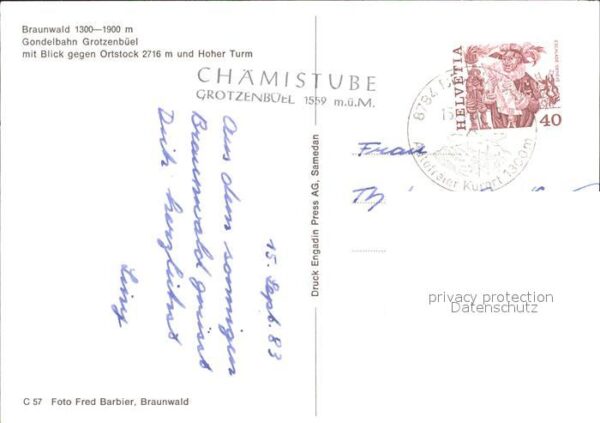 Braunwald 1300—1900 m
Gondelbahn Grotzenbüel
mit Blick gegen Ortstock 2716 m und Hoher Turm
CHÄMISTUBE
GROTZENBÜEL 1559 m.ü.M.
15. Sept. 83
Aus dem sonnigen
Braunwald grüsst
Dich herzlichst
Liny
Druck Engadin Press AG, Samedan
C 57 Foto Fred Barbier, Braunwald
HELVETIA
40
8784
Autofreier Kurort 1300m
Frau
privacy protection
Datenschutz